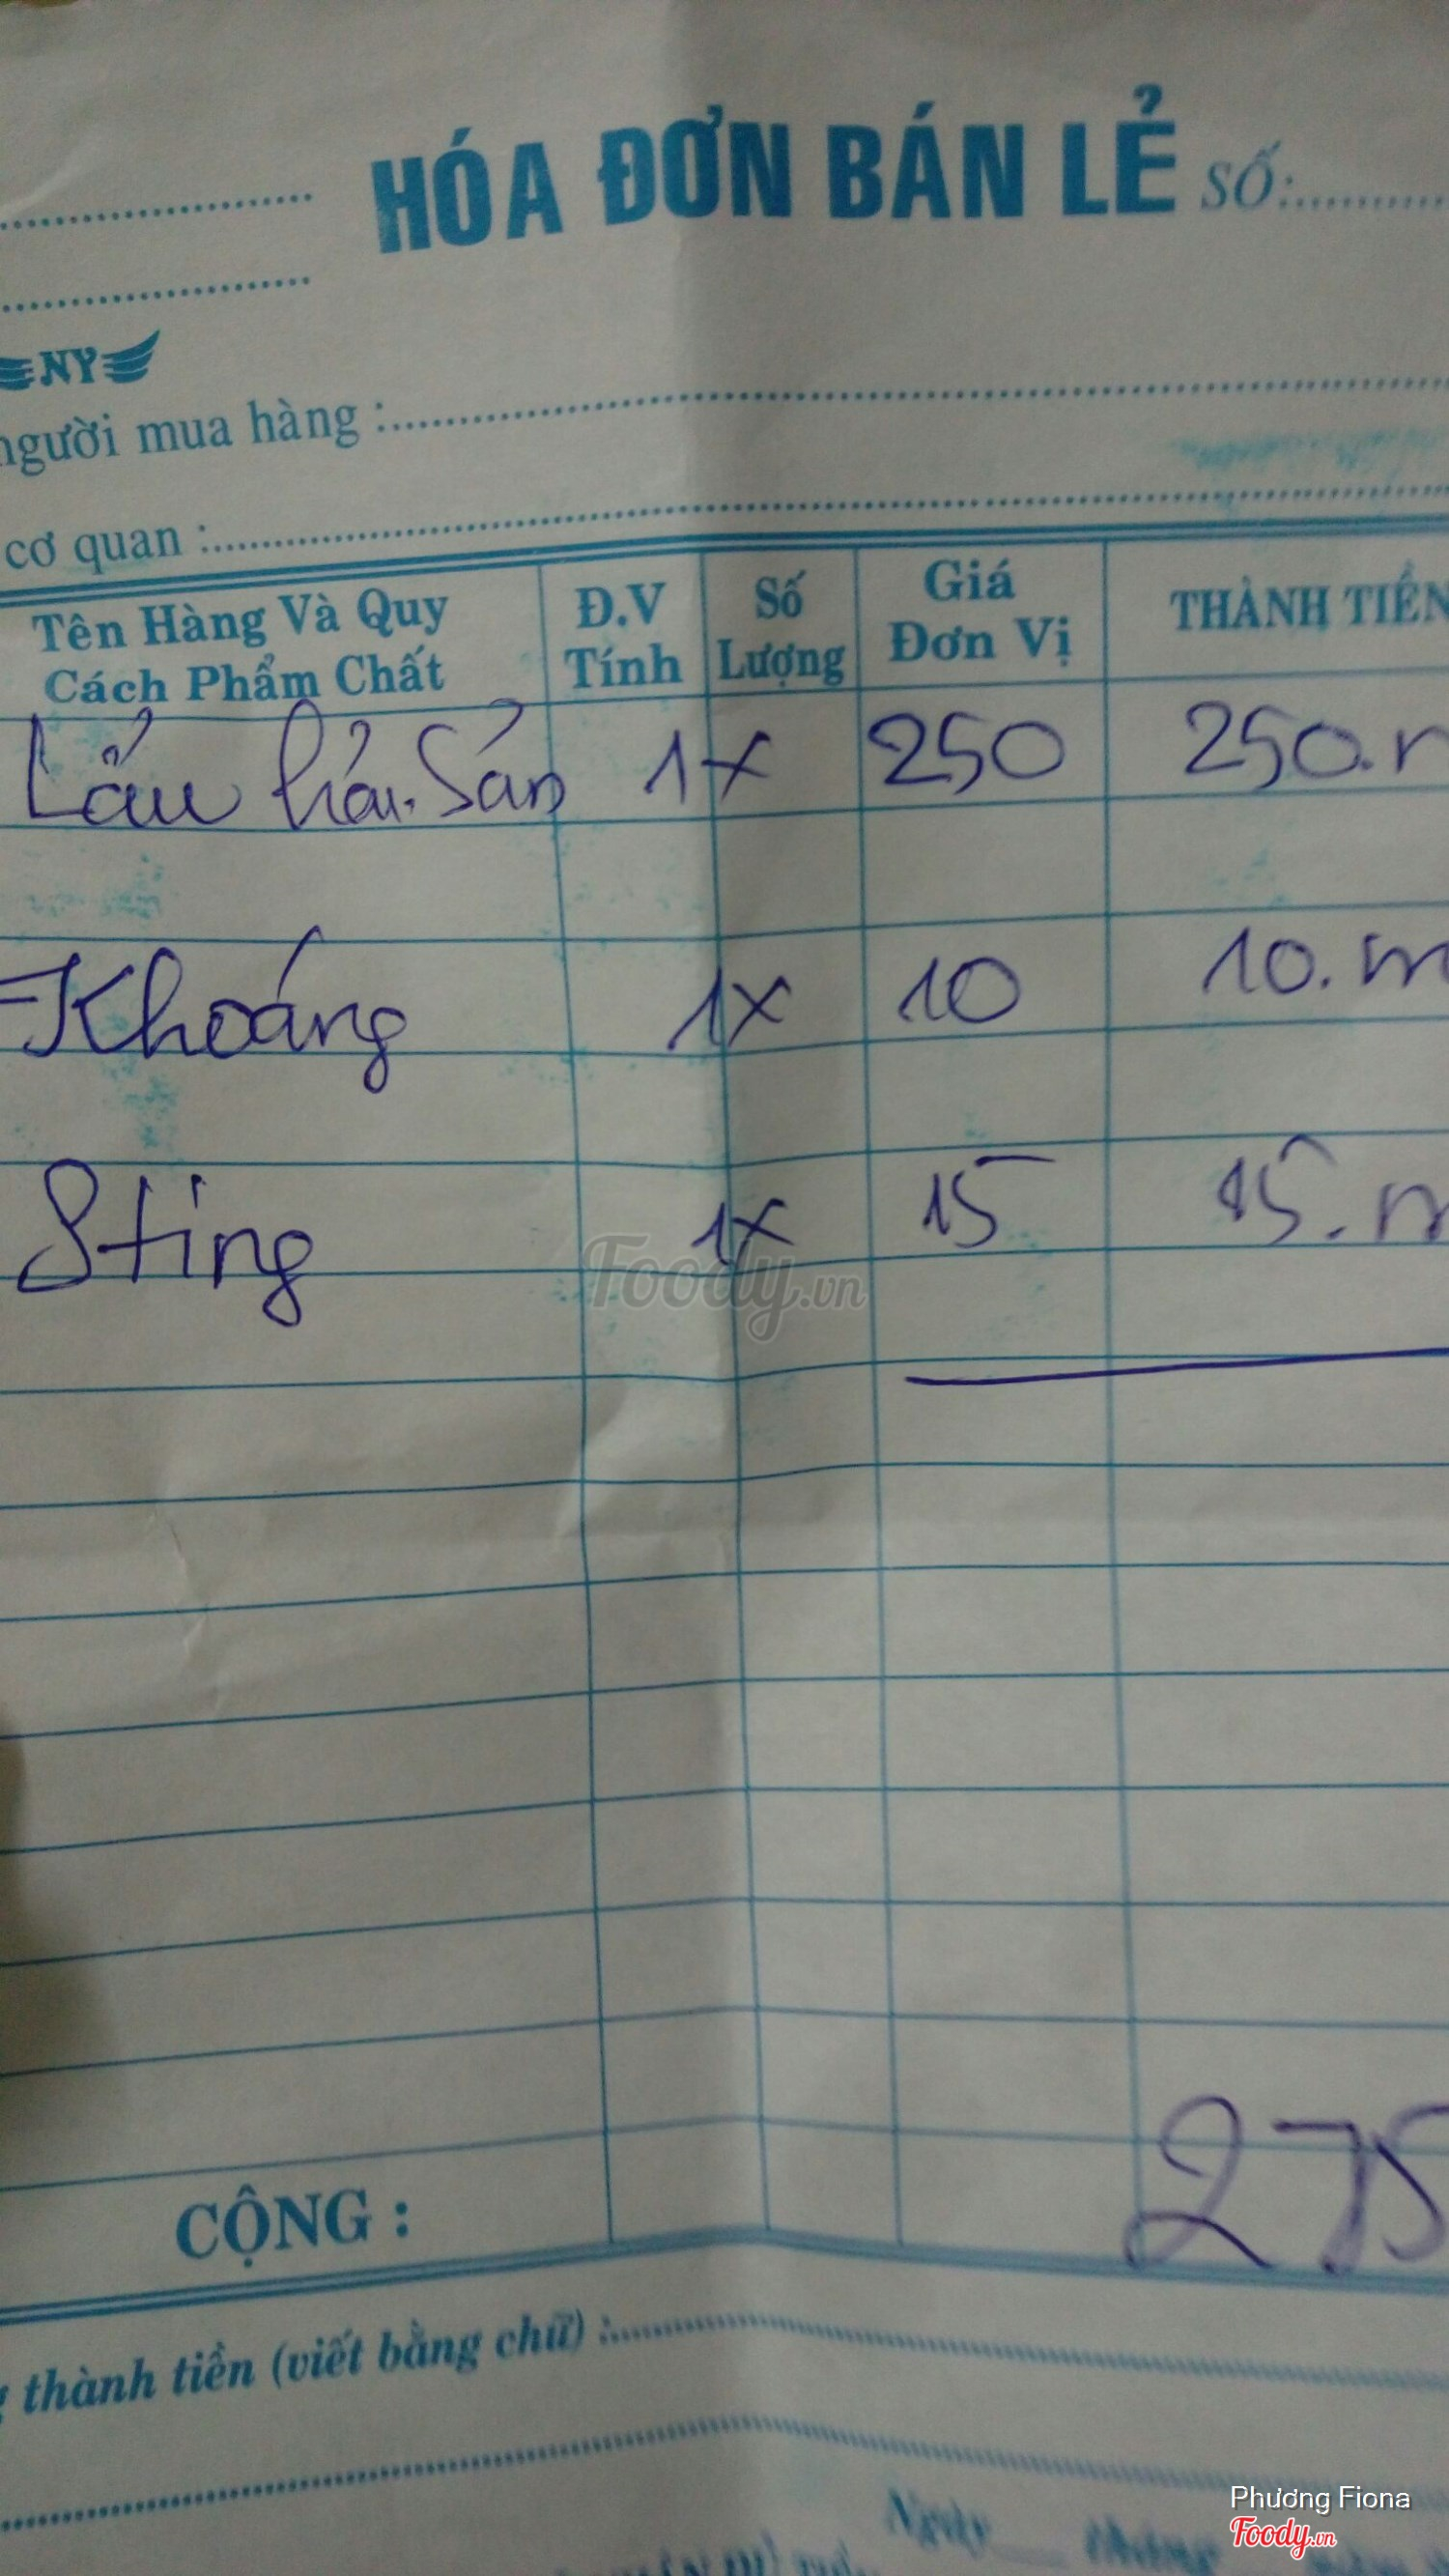 HÓA ĐƠN BÁN LẺ SỐ:
NY
người mua hàng :
cơ quan :
Tên Hàng Và Quy Cách Phẩm Chất Đ.V Tính Số Lượng Giá Đơn Vị THÀNH TIỀN
Lẩu hải Sản 1x 250 250.
Khoáng 1x 10 10.m
Sting 1x 15 15.
Foody.vn
CỘNG : 275
thành tiền (viết bằng chữ) :
Phương Fiona
Ngày tháng
Foody.vn